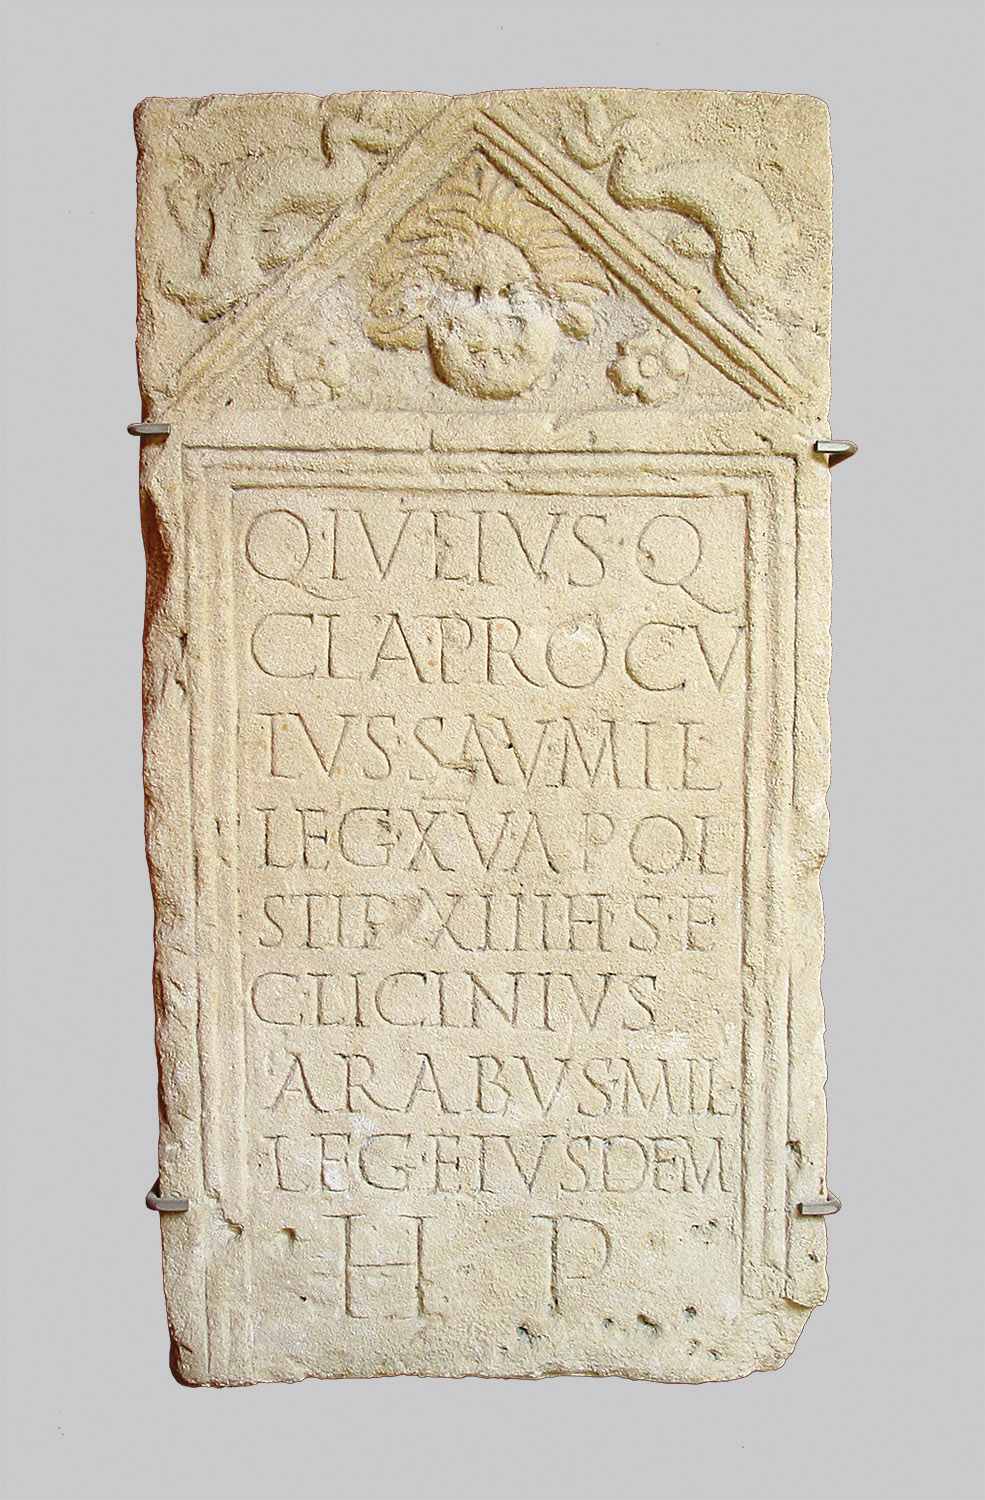 Q·IVLIVS·Q
CLA PROCV
LVS·SAV·MIL
LEG·XV·APOL
STIP·XIIII H·S·E
C·LICINIVS
ARABVS·MIL
LEG·EIVSDEM
H P